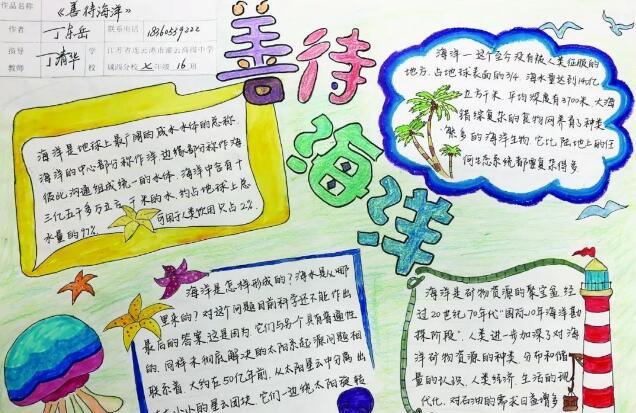 作品名称
《善待海洋》
作者
丁东岳
联系电话
指导教师
丁清华
学校
江苏省连云港市灌云高级中学
城西分校七年级16班
善待海洋
海洋是地球上最广阔的咸水水体的总称
海洋的中心部分称作洋边缘部分称作海
彼此沟通组成统一的水体。海洋中含有十
三亿五千多万立方千米的水,约占地球上总
水量的97%
可用于人类饮用只占2%
海洋一这个至今没有被人类征服的
地方,占地球表面的3/4,海水量达到14亿
立方千米,平均深度有3700米,大海
错综复杂的食物网养育了种类
繁多的海洋生物,它比陆地上的任
何生态系统都要复杂得多
海洋是怎样形成的?海水是从哪
里来的?对这个问题目前科学还不能作出
最后的答案这是因为,它们与另个具有普遍性
的,同样未彻底解决的太阳系起源问题相
联系着,大约在50亿年前,从太阳星云中分离出
大大小小的星云团块,它们一边绕太阳旋转
海洋是矿物资源的聚宝盆,经
过20世纪70年代"国际10年海洋勘
探阶段",人类进一步加深了对海
洋矿物资源的种类,分布和储
量的认识,人类经济,生活的现
代化,对石油的需求日益增多